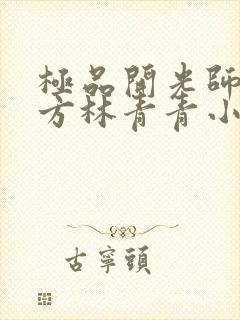 極品開光師
方林青青小
古寧頭